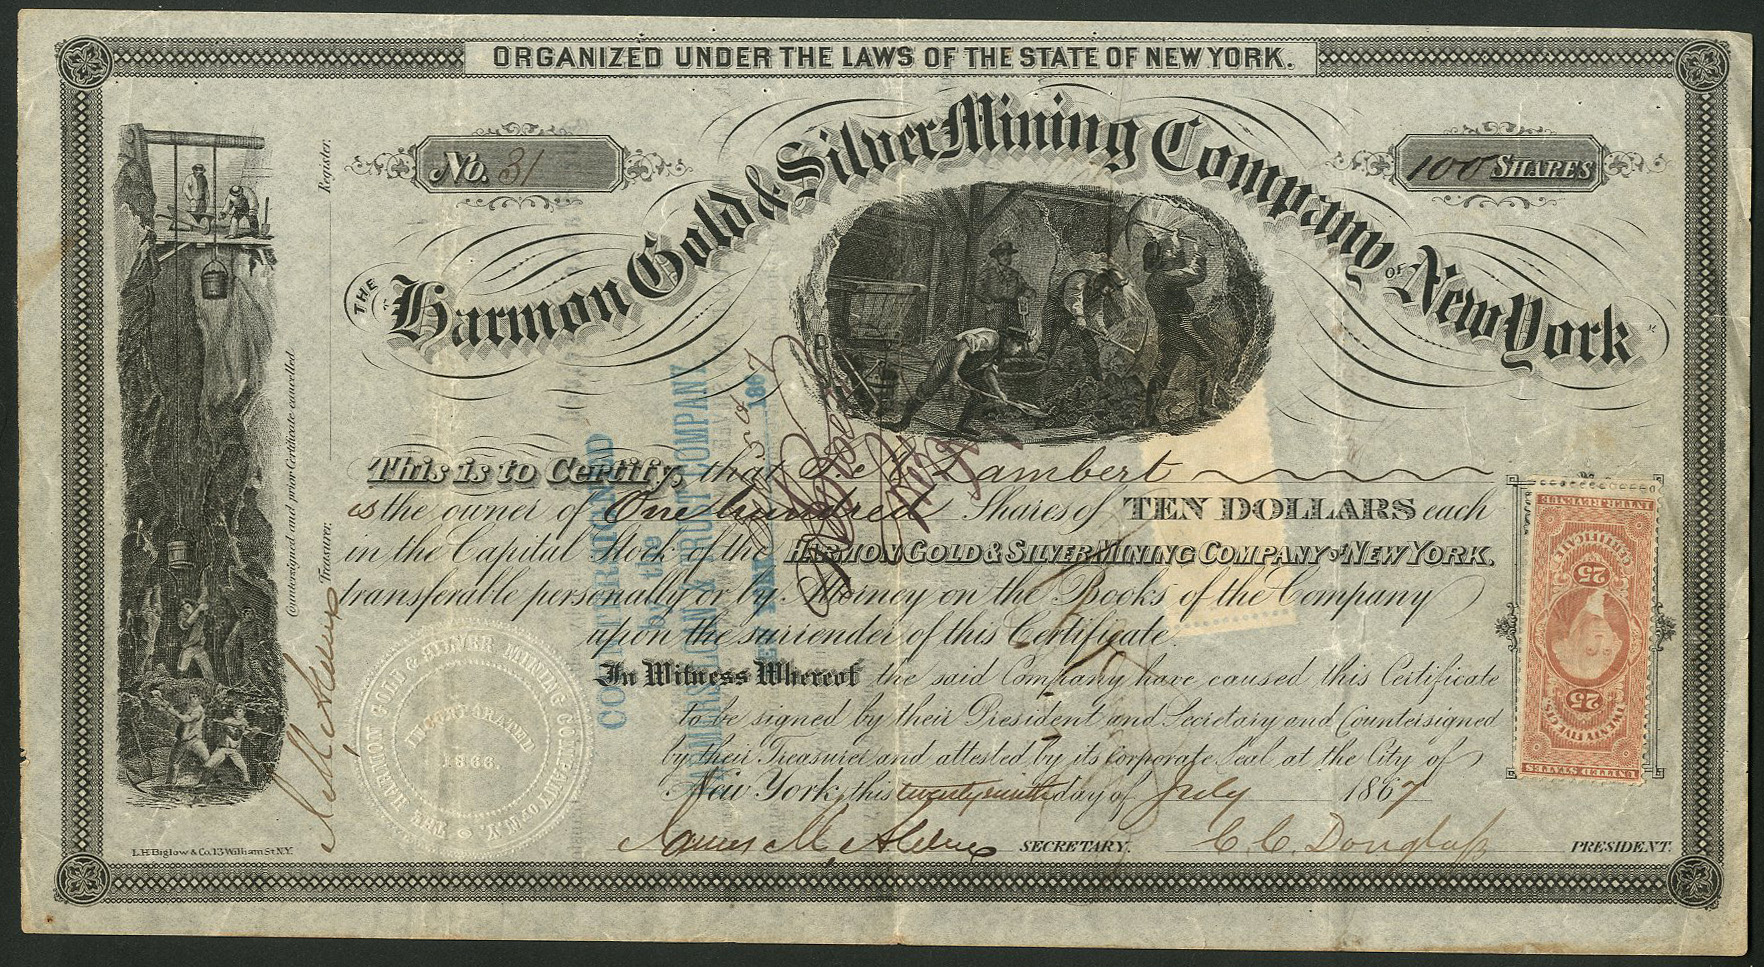 ORGANIZED UNDER THE LAWS OF THE STATE OF NEW YORK.
No. 31
100 SHARES
THE Harmon Gold & Silver Mining Company OF New York
Register.
Countersigned and prior Certificate cancelled.
Treasurer.
This is to Certify, that Lambert
is the owner of One hundred Shares of TEN DOLLARS each
in the Capital Stock of the HARMON GOLD & SILVER MINING COMPANY OF NEW YORK.
transferable personally or by Attorney on the Books of the Company
upon the surrender of this Certificate.
In Witness Whereof the said Company have caused this Certificate
to be signed by their President and Secretary and Countersigned
by their Treasurer and attested by its corporate Seal at the City of
New York, this twenty ninth day of July 1867
SECRETARY. C. C. Douglass PRESIDENT.
COUNTERSIGNED
by the
FARMERS LOAN & TRUST COMPANY
186
THE HARMON GOLD & SILVER MINING COMPANY OF N.Y.
INCORPORATED
1866.
INTER. REVENUE
CERTIFICATE
25 25
TWENTY FIVE CTS.
UNITED STATES
L.H. Biglow & Co. 13 William St. N.Y.